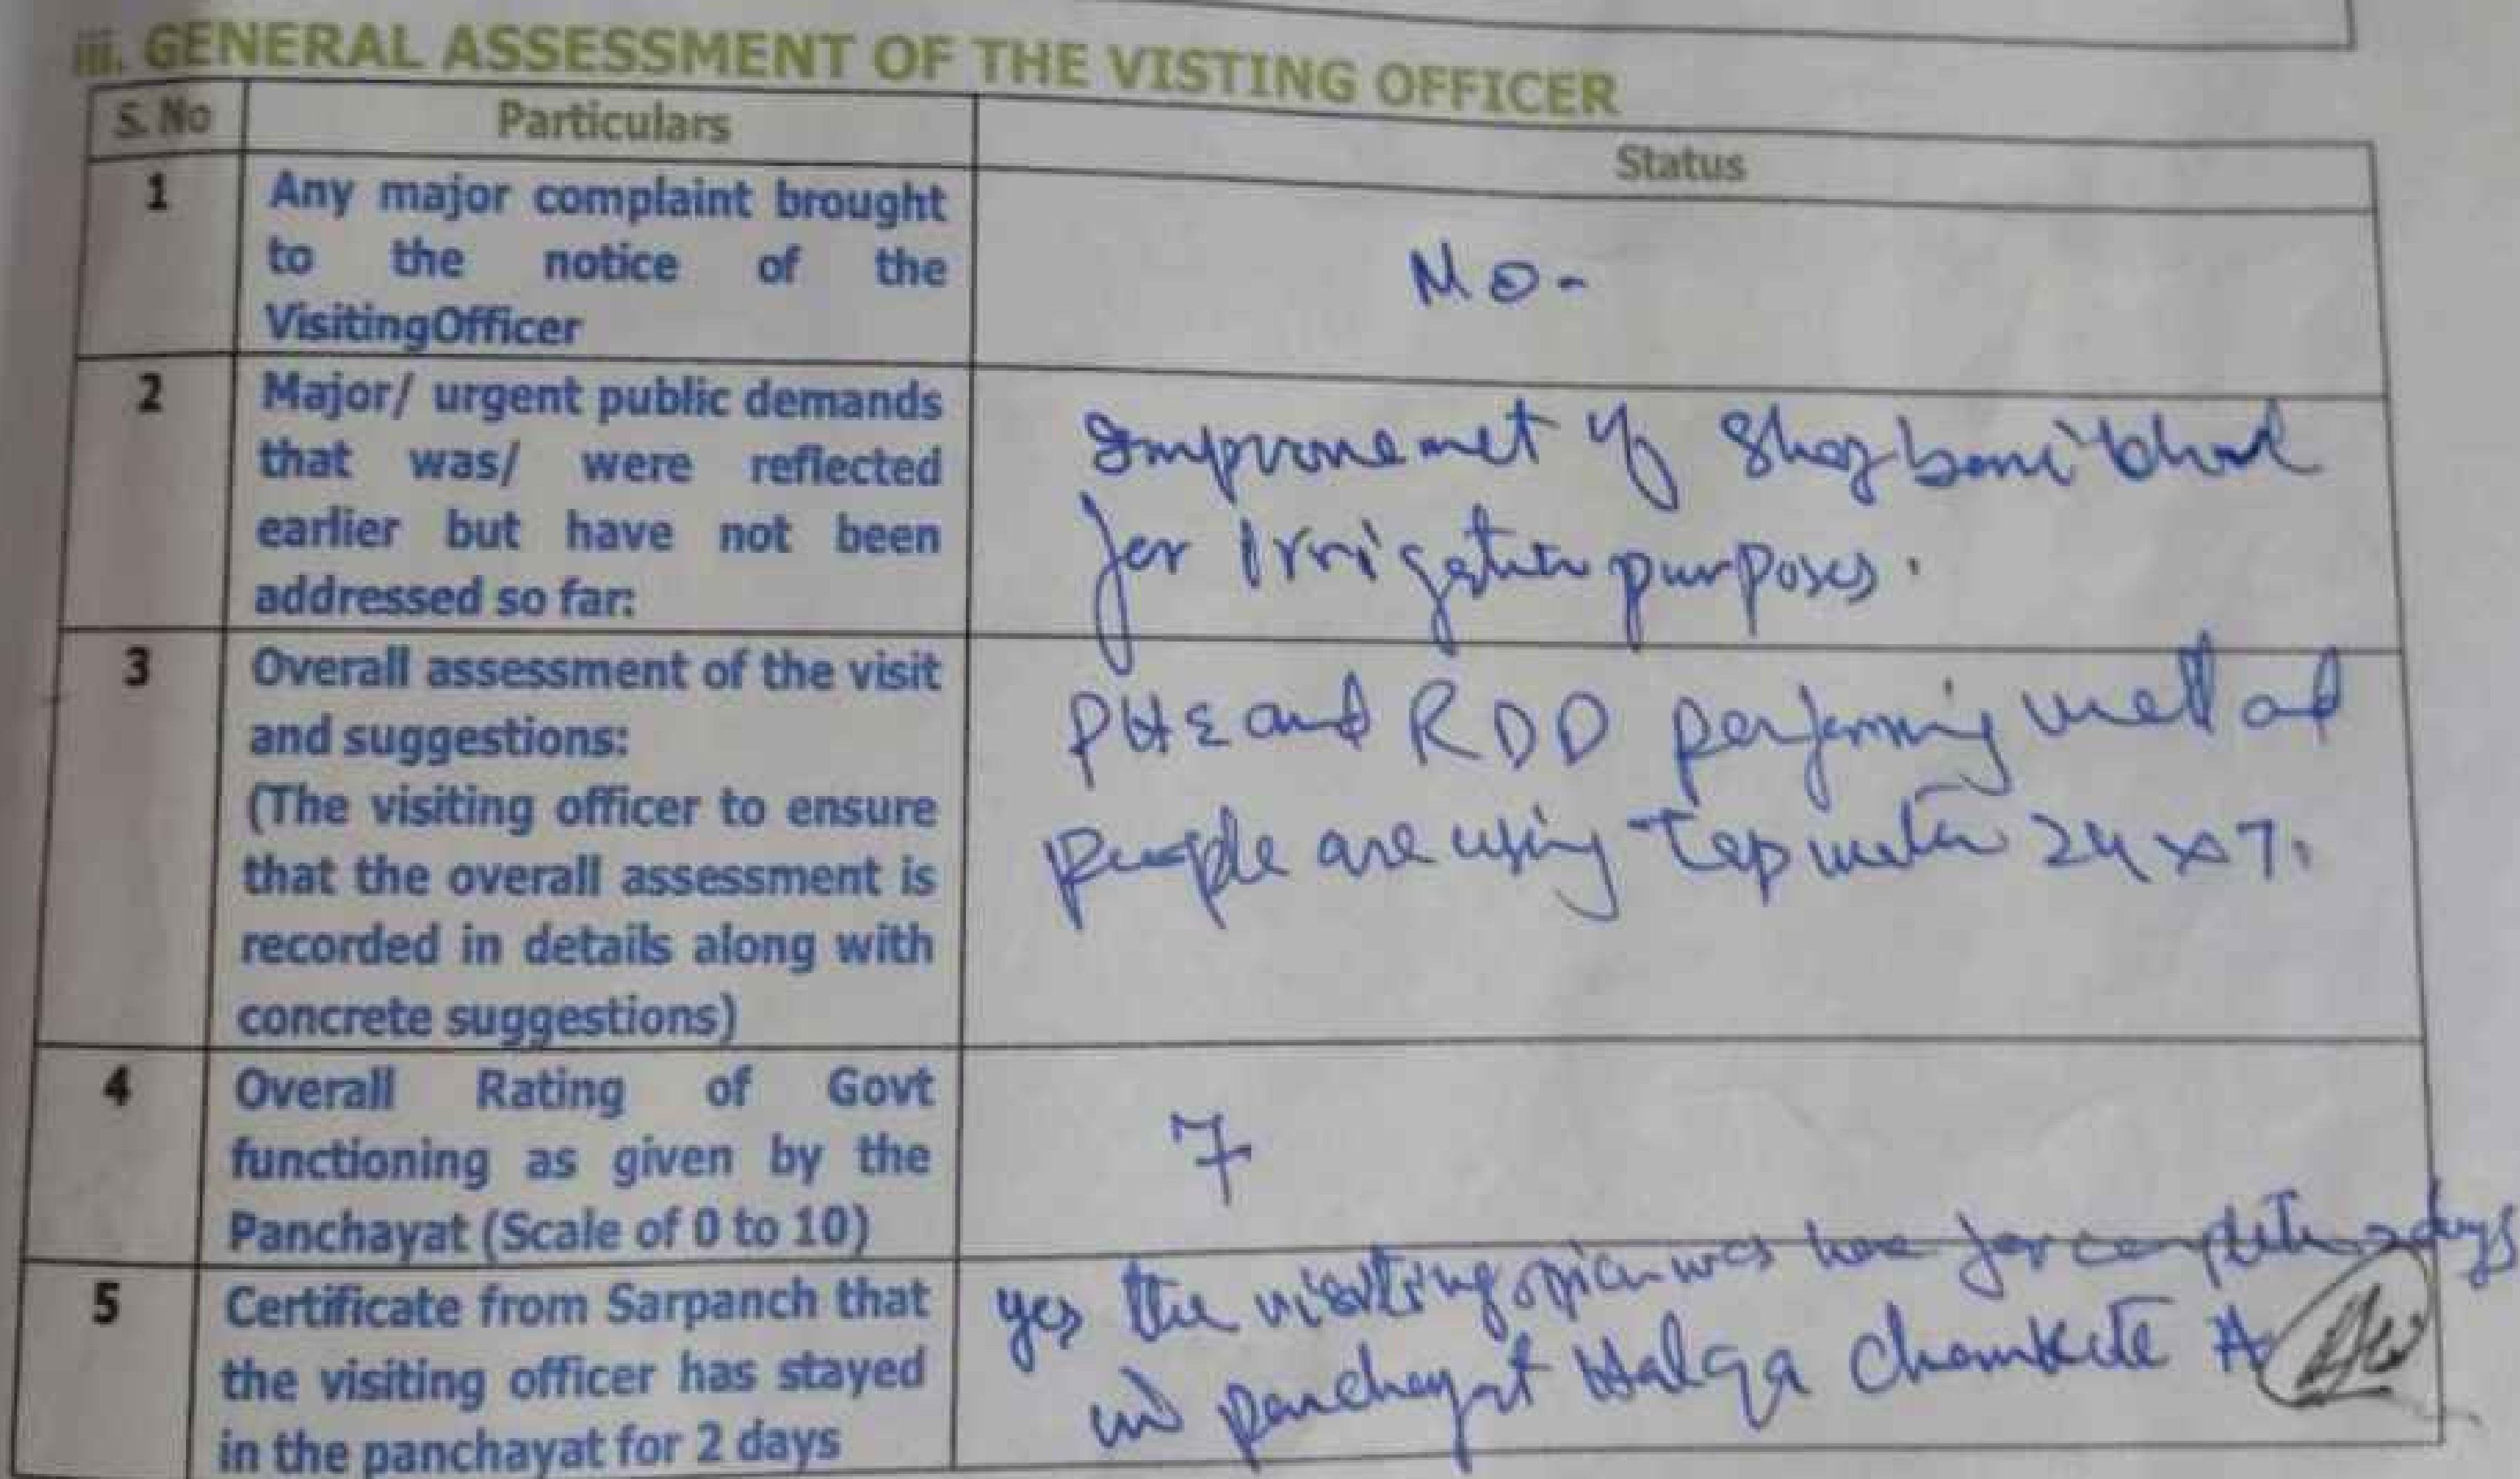 iii. GENERAL ASSESSMENT OF THE VISTING OFFICER
S. No Particulars Status
1 Any major complaint brought
to the notice of the
VisitingOfficer
No-
2 Major/ urgent public demands
that was/ were reflected
earlier but have not been
addressed so far:
Improvemet of
for Irrigation purposes.
3 Overall assessment of the visit
and suggestions:
(The visiting officer to ensure
that the overall assessment is
recorded in details along with
concrete suggestions)
PHE and RDD performing well ad
people are using Tap water 24x7.
4 Overall Rating of Govt
functioning as given by the
Panchayat (Scale of 0 to 10)
7
5 Certificate from Sarpanch that
the visiting officer has stayed
in the panchayat for 2 days
yes the visiting was here for complete 2 days
in panchayat Halqa Chamkote A